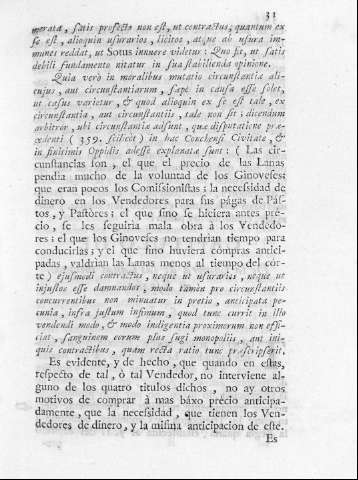 31
morata, satis profecto non est, ut contractus, quantum ex
se est, alioquin usurarios, licitos, atque ab usura im-
munes reddat, ut Sotus innuere videtur: Quo fit, ut satis
debili fundamento nitatur in sua stabilienda opinione.
Quia verò in moralibus mutatio circunstantiæ ali-
cujus, aut circunstantiarum, sæpè in causa esse solet,
ut casus varietur, & quod alioquin ex se est tale, ex
circunstantia, aut circunstantiis, tale non sit: dicendum
arbitror, ubi circunstantiæ adsunt, quæ disputatione præ-
cedenti (359. scilicèt) in hac Conchensi Civitate, &
in finitimis Oppidis adesse explanata sunt: (Las cir-
cunstancias son, el que el precio de las Lanas
pendia mucho de la voluntad de los Ginoveses:
que eran pocos los Comissionistas: la necessidad de
dinero en los Vendedores para sus págas de Pás-
tos, y Pastòres: el que sino se hiciera antes pré-
cio, se les seguiria mala obra à los Vendedo-
res: el que los Ginoveses no tendrian tiempo para
conducirlas; y el que sino huviera cómpras antici-
padas, valdrian las Lanas menos al tiempo del cór-
te) ejusmodi contractus, neque ut usurarios, neque ut
injustos esse damnandos; modo tamèn pro circunstantiis
concurrentibus non minuatur in pretio, anticipata pe-
cunia, infra justum infimum, quod tunc currit in illo
vendendi modo, & modo indigentia proximorum non effi-
ciat, sanguinem eorum plus sugi monopoliis, aut ini-
quis contractibus, quàm recta ratio tunc præscripserit.
Es evidente, y de hecho, que quando en estas,
respecto de tal, ò tal Vendedor, no interviene al-
guno de los quatro titulos dichos, no ay otros
motivos de comprar à mas báxo précio anticipa-
damente, que la necessidad, que tienen los Ven-
dedores de dinero, y la misma anticipacion de este.
Es